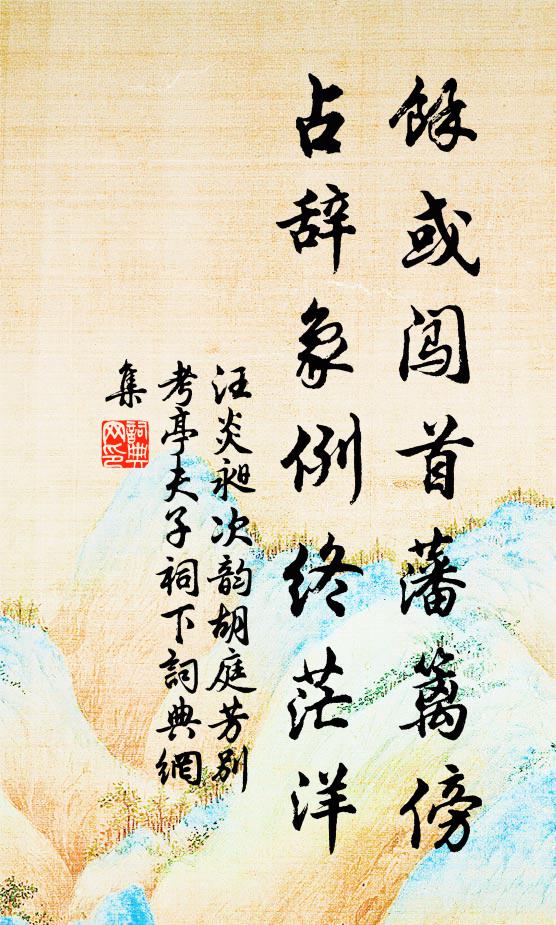 馀或闯首藩篱傍
占辞象例终茫洋
汪炎昶次韵胡庭芳别
考亭夫子祠下詞典網
集
詞典
网印